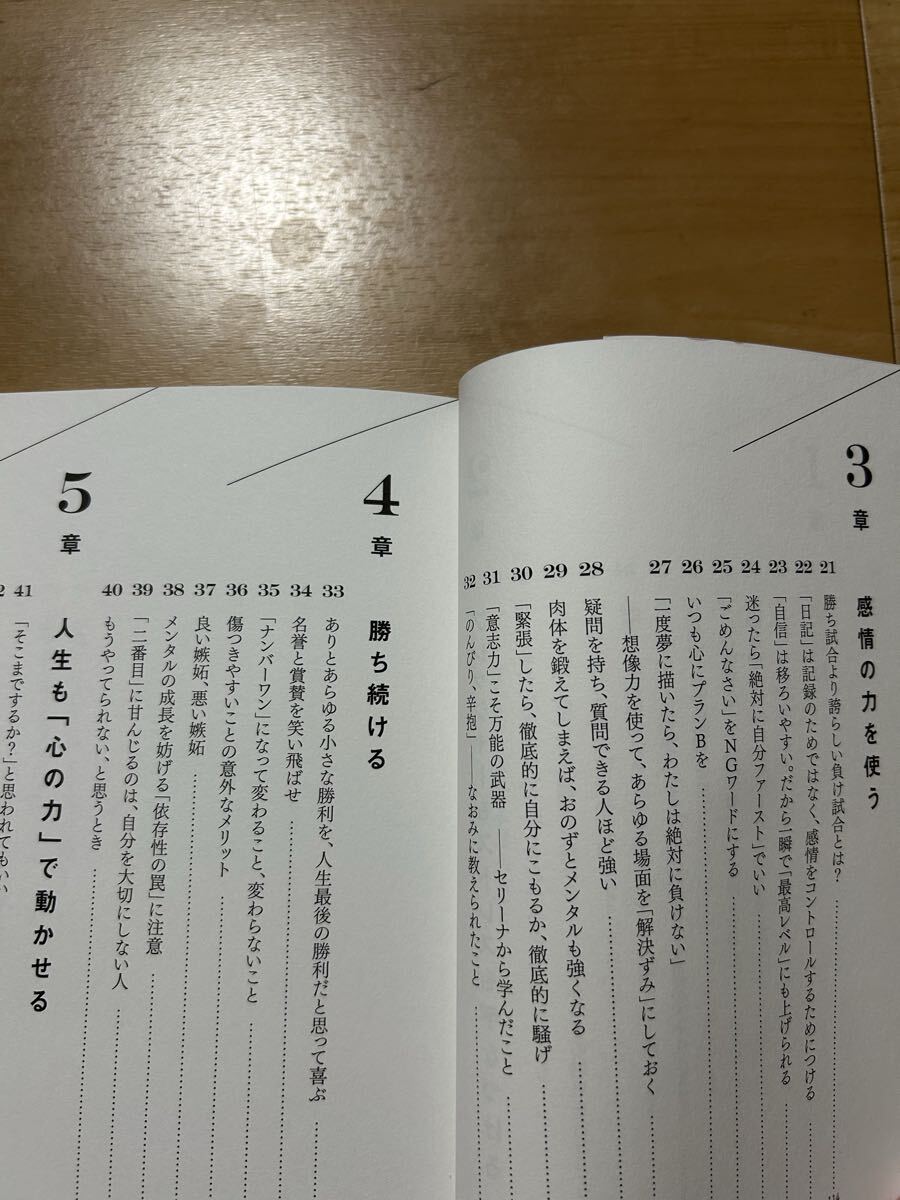 3章
感情の力を使う
21 勝ち試合より誇らしい負け試合とは?
22 「日記」は記録のためではなく、感情をコントロールするためにつける
23 「自信」は移ろいやすい。だから一瞬で「最高レベル」にも上げられる
24 迷ったら「絶対に自分ファースト」でいい
25 「ごめんなさい」をNGワードにする
26 いつも心にプランBを
27 「一度夢に描いたら、わたしは絶対に負けない」
——想像力を使って、あらゆる場面を「解決ずみ」にしておく
28 疑問を持ち、質問できる人ほど強い
29 肉体を鍛えてしまえば、おのずとメンタルも強くなる
30 「緊張」したら、徹底的に自分にこもるか、徹底的に騒げ
31 「意志力」こそ万能の武器 ——セリーナから学んだこと
32 「のんびり、辛抱」——なおみに教えられたこと
4章
勝ち続ける
33 ありとあらゆる小さな勝利を、人生最後の勝利だと思って喜ぶ
34 名誉と賞賛を笑い飛ばせ
35 「ナンバーワン」になって変わること、変わらないこと
36 傷つきやすいことの意外なメリット
37 良い嫉妬、悪い嫉妬
38 メンタルの成長を妨げる「依存性の罠」に注意
39 「二番目」に甘んじるのは、自分を大切にしない人
40 もうやってられない、と思うとき
5章
人生も「心の力」で動かせる
41 「そこまでするか?」と思われてもいい
2